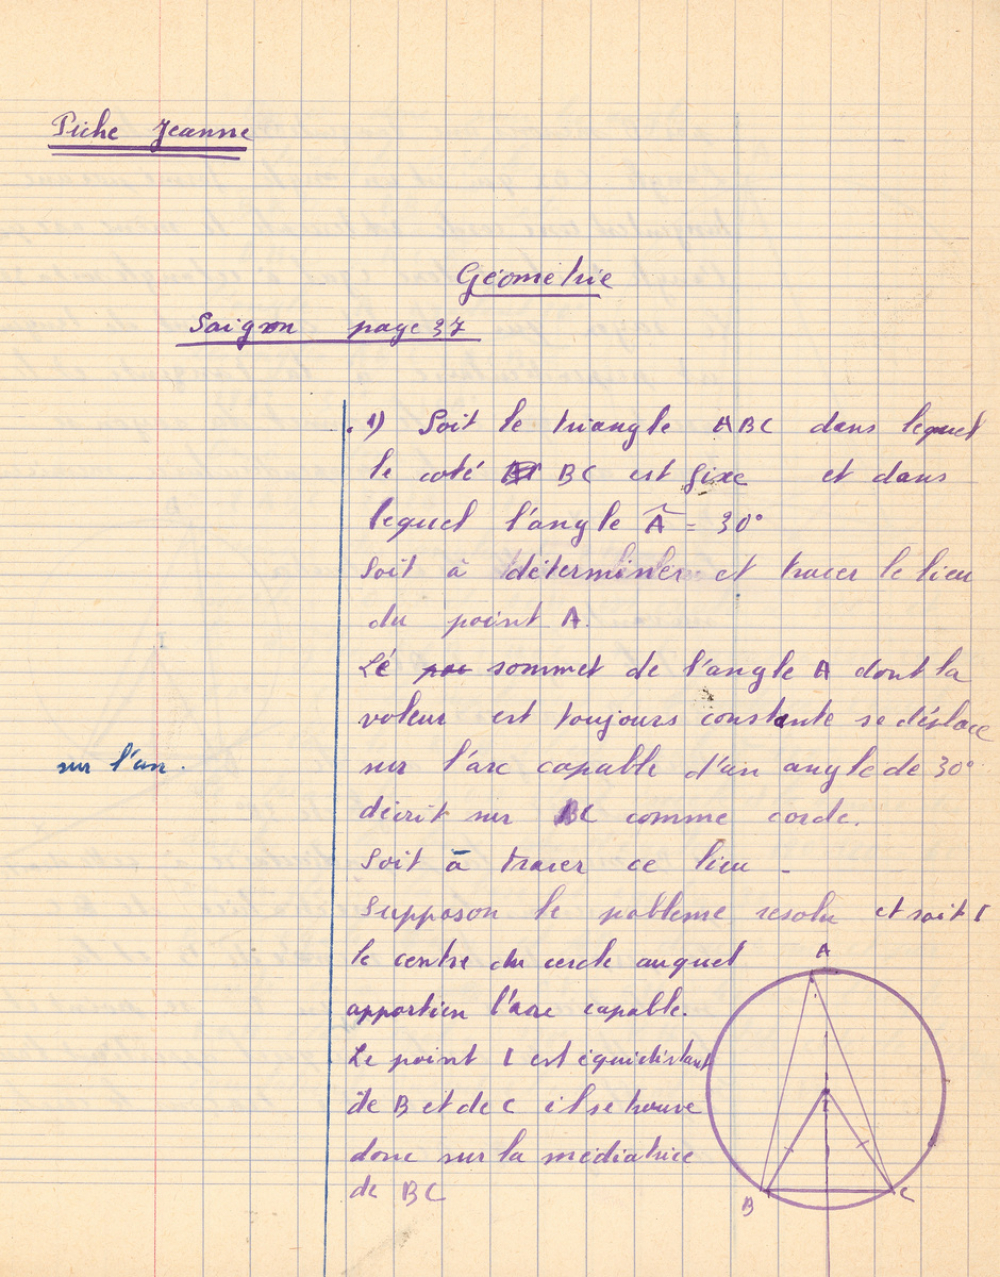 Piche Jeanne
Géométrie
Saigon page 37
1) Soit le triangle ABC dans lequel
le coté BC est fixe et dans
lequel l'angle Â = 30°
Soit à déterminer et tracer le lieu
du point A.
Lé sommet de l'angle A dont la
valeur est toujours constante se déplace
sur l'arc.
sur l'arc capable d'un angle de 30°
décrit sur BC comme corde.
Soit à tracer ce lieu
Supposon le pobleme resolu et soit I
le centre du cercle auquel
appartien l'arc capable.
Le point I est équidistant
de B et de C il se trouve
donc sur la médiatrice
de BC
A
I
B
C